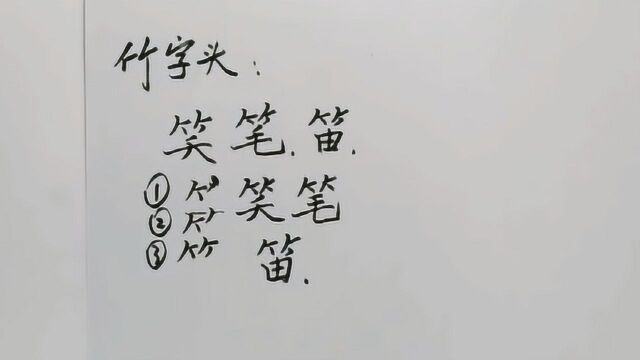 竹字头：
笑笔.笛.
① 𥫗 笑笔
② 𥫗
③ 𥫗 笛.